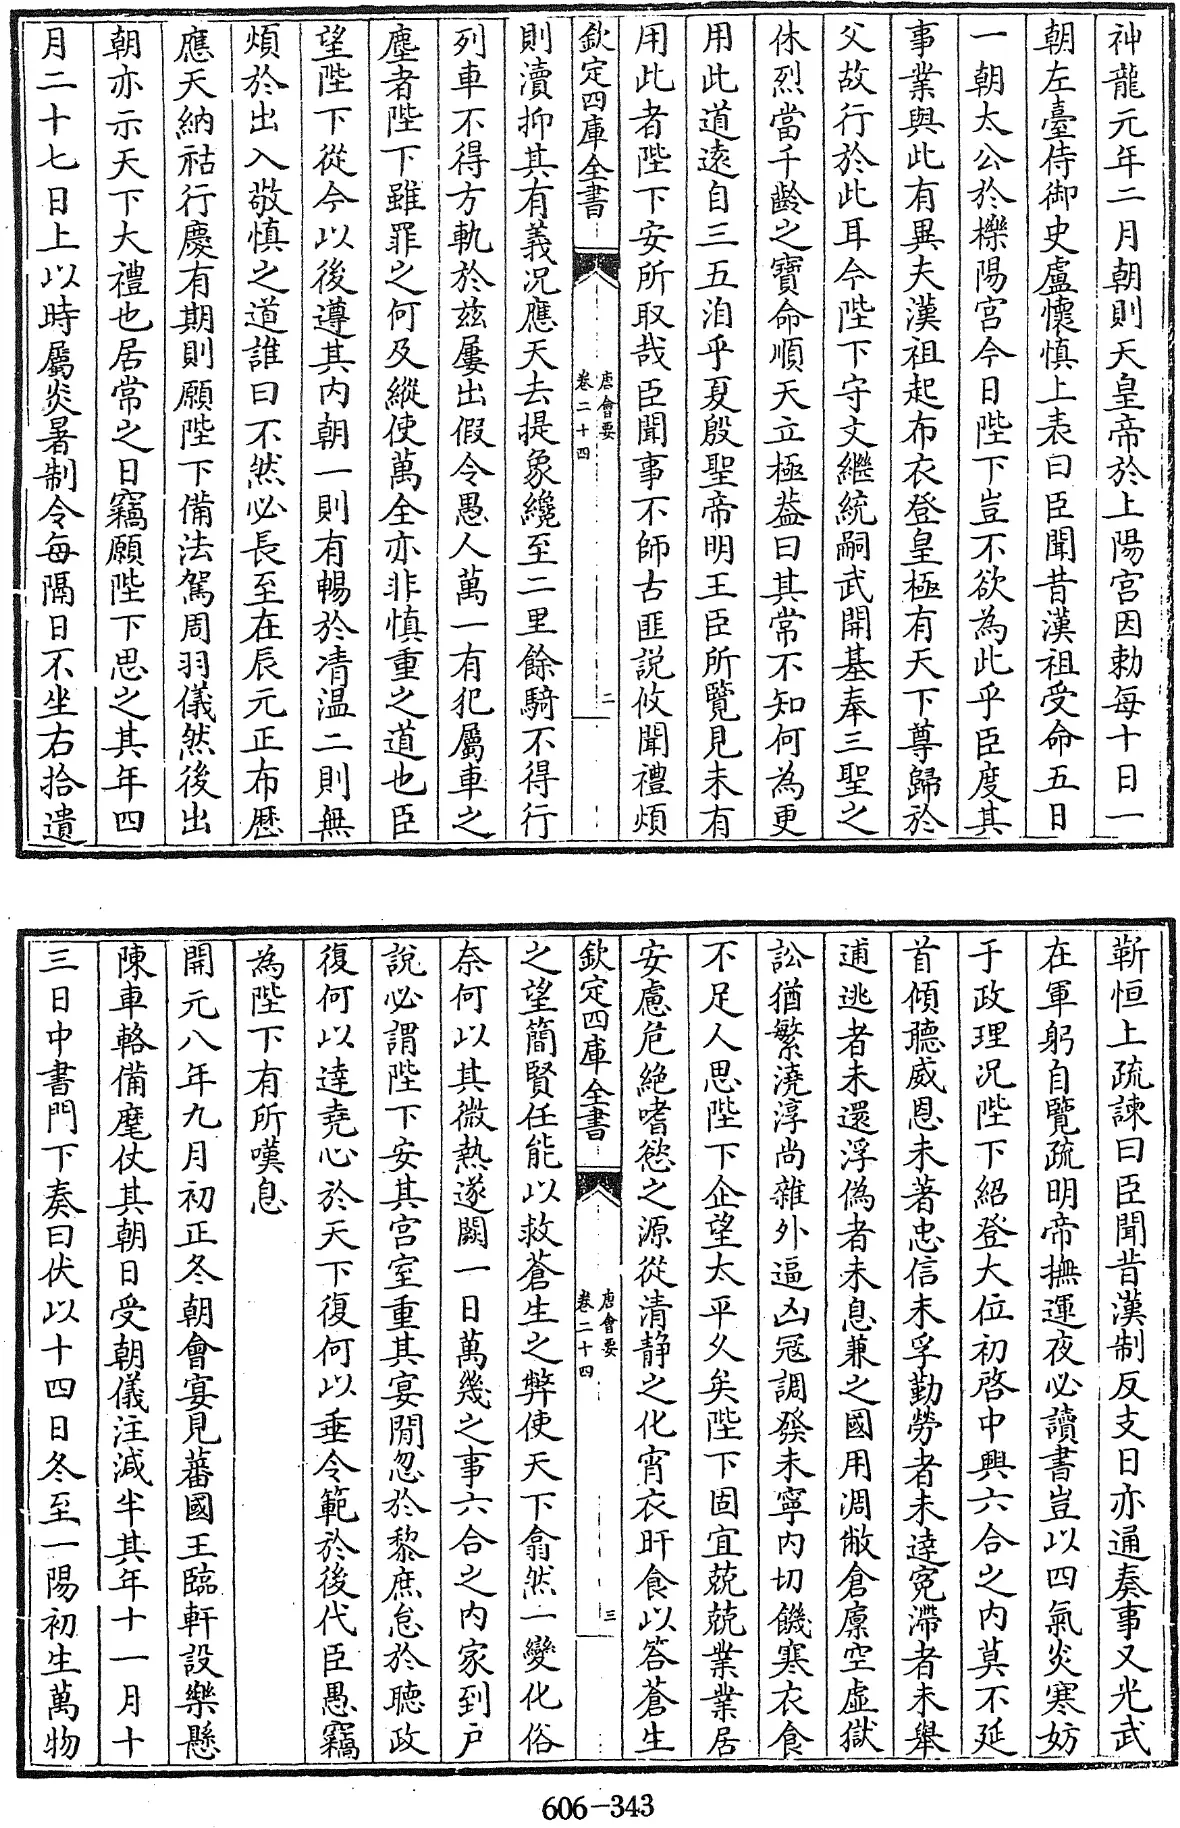 神龍元年二月朝則天皇帝於上陽宫因勅每十日一
朝左臺侍御史盧懷慎上表曰臣聞昔漢祖受命五日
一朝太公於櫟陽宫今日陛下豈不欲為此乎臣度其
事業與此有異夫漢祖起布衣登皇極有天下尊歸於
父故行於此耳今陛下守文繼統嗣武開基奉三聖之
休烈當千齡之寶命順天立極葢曰其常不知何為更
用此道遠自三五洎乎夏殷聖帝明王臣所覽見未有
用此者陛下安所取哉臣聞事不師古匪説攸聞禮煩
欽定四庫全書
唐會要
卷二十四
二
則瀆抑其有義况應天去提象纔至二里餘騎不得行
列車不得方軌於兹屢出假令愚人萬一有犯屬車之
塵者陛下雖罪之何及縱使萬全亦非慎重之道也臣
望陛下從今以後遵其内朝一則有暢於凊温二則無
煩於出入敬慎之道誰曰不然必長至在辰元正布歴
應天納祜行慶有期則願陛下備法駕周羽儀然後出
朝亦示天下大禮也居常之日竊願陛下思之其年四
月二十七日上以時屬炎暑制令每隔日不坐右拾遺
靳恒上疏諫曰臣聞昔漢制反支日亦通奏事又光武
在軍躬自覽疏明帝撫運夜必讀書豈以四氣炎寒妨
于政理况陛下紹登大位初啓中興六合之内莫不延
首傾聽威恩未著忠信未孚勤勞者未達寃滯者未舉
逋逃者未還浮偽者未息兼之國用凋敝倉廪空虚獄
訟猶繁澆淳尚雜外逼凶冦調發未寧内切饑寒衣食
不足人思陛下企望太平乆矣陛下固宜兢兢業業居
安慮危絶嗜慾之源從清静之化宵衣旰食以答蒼生
欽定四庫全書
唐會要
卷二十四
三
之望簡賢任能以救蒼生之弊使天下翕然一變化俗
奈何以其微熱遂闕一日萬幾之事六合之内家到户
説必謂陛下安其宫室重其宴閒忽於黎庶怠於聽政
復何以達堯心於天下復何以垂令範於後代臣愚竊
為陛下有所嘆息
開元八年九月初正冬朝會宴見蕃國王臨軒設樂懸
陳車輅備麾仗其朝日受朝儀注減半其年十一月十
三日中書門下奏曰伏以十四日冬至一陽初生萬物
606-343